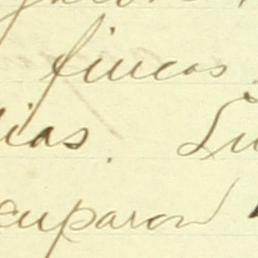 fincas
lias. Lu
cuparon